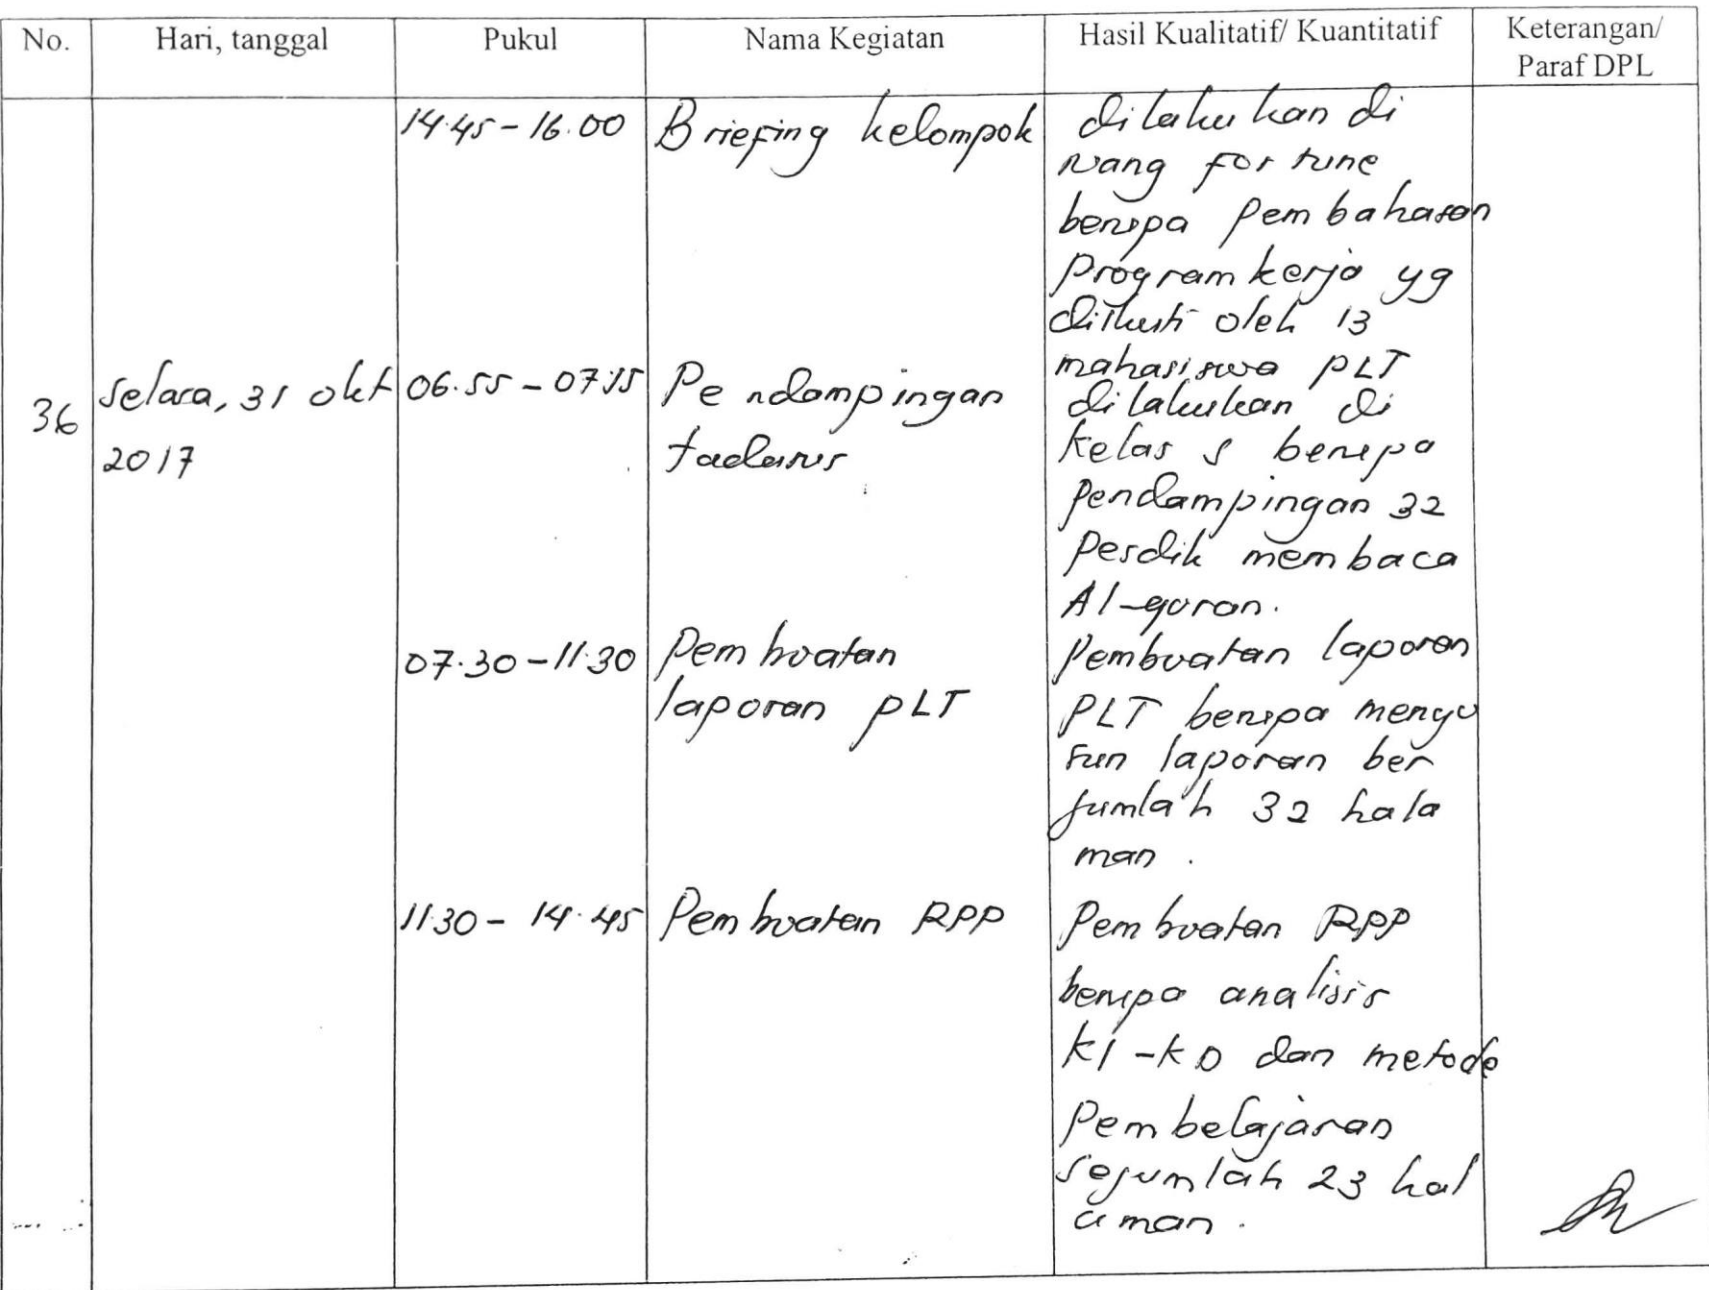 No.
Hari, tanggal
Pukul
Nama Kegiatan
Hasil Kualitatif/ Kuantitatif
Keterangan/
Paraf DPL
14.45 - 16.00
Briefing kelompok
dilakukan di
ruang fortune
berupa pembahasan
program kerja yg
diikuti oleh 13
mahasiswa PLT
36
Selasa, 31 okt
2017
06.55 - 07.15
Pendampingan
tadarus
dilakukan di
kelas s berupa
pendampingan 32
Pesdik membaca
Al-quran.
07.30 - 11.30
Pembuatan
laporan PLT
Pembuatan laporan
PLT berupa menyu
sun laporan ber
jumlah 32 hala
man .
11.30 - 14.45
Pembuatan RPP
Pembuatan RPP
berupa analisis
KI - KD dan metode
Pembelajaran
sejumlah 23 hal
aman .